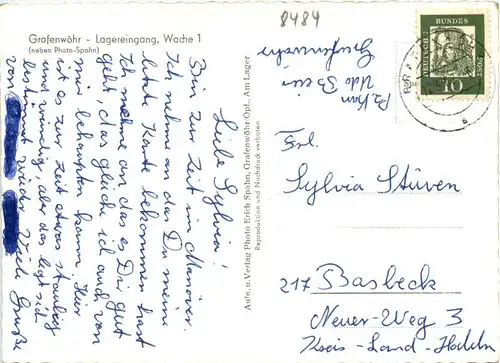 8484
Grafenwöhr - Lagereingang, Wache 1
(neben Photo-Spahn)
Liebe Sylvia!
Bin zur Zeit im Manöver.
Ich nehme an das Du meine
letzte Karte bekommen hast
Ich nehme an das es Dir gut
geht, das gleiche ich auch von
mir behaupten kann. Hier
ist es zur Zeit etwas staubig
und windig, aber das legt sich
bestimmt wieder. Viele Grüße
von
Aufn. u. Verlag Photo Erich Spahn, Grafenwöhr Opf., Am Lager
Reproduktion und Nachdruck verboten
Udo
DEUTSCHE
BUNDES
POST
10
Frl.
Sylvia Stüven
217 Basbeck
Neuer-Weg 3
Kreis-Land-Hadeln